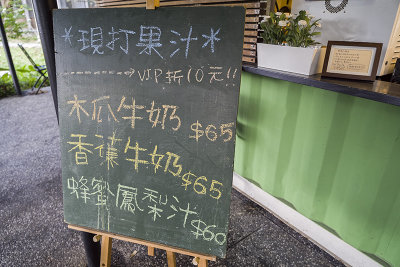 *現打果汁*
------→ VIP折10元!!
木瓜牛奶 $65
香蕉牛奶 $65
蜂蜜鳳梨汁 $60